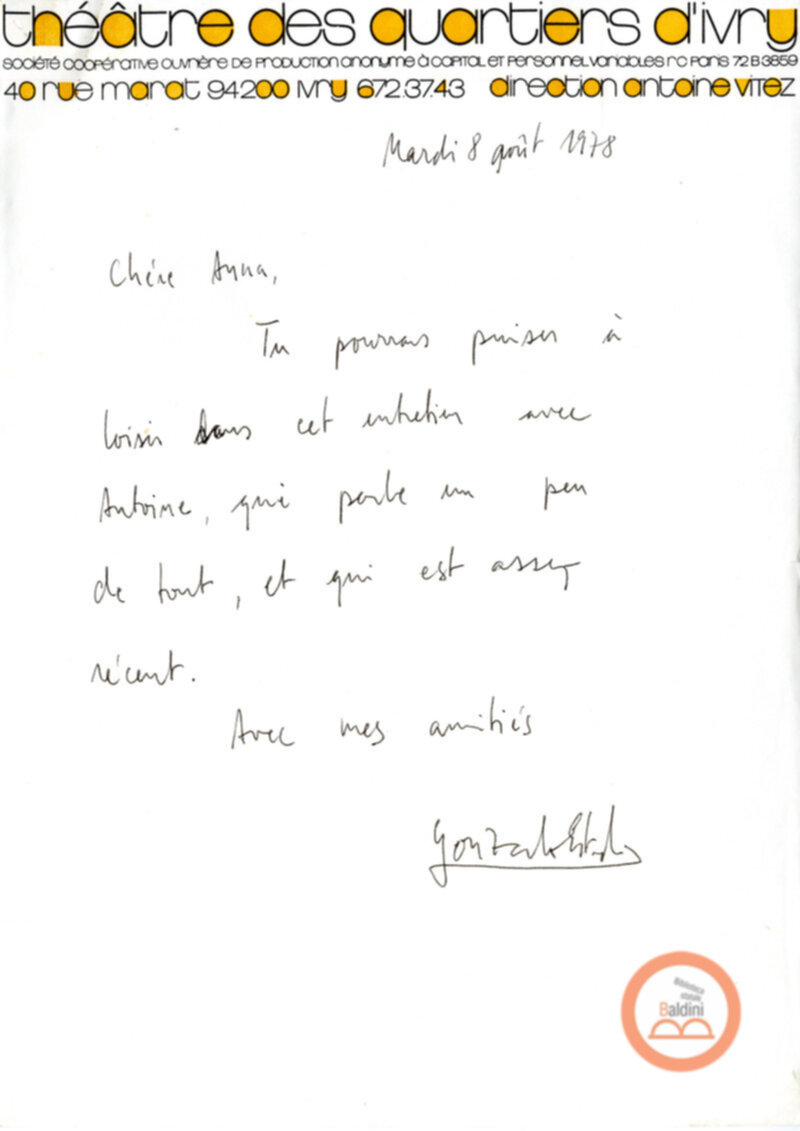 théâtre des quartiers d'ivry
société coopérative ouvrière de production anonyme à capital et personnel variables rc paris 72 B 3859
40 rue marat 94200 ivry 672.37.43 direction antoine vitez
Mardi 8 août 1978
Chère Anna,
Tu pourras puiser à
loisir dans cet entretien avec
Antoine, qui parle un peu
de tout, et qui est assez
récent.
Avec mes amitiés
Gonzalo
Biblioteca
statale
Baldini